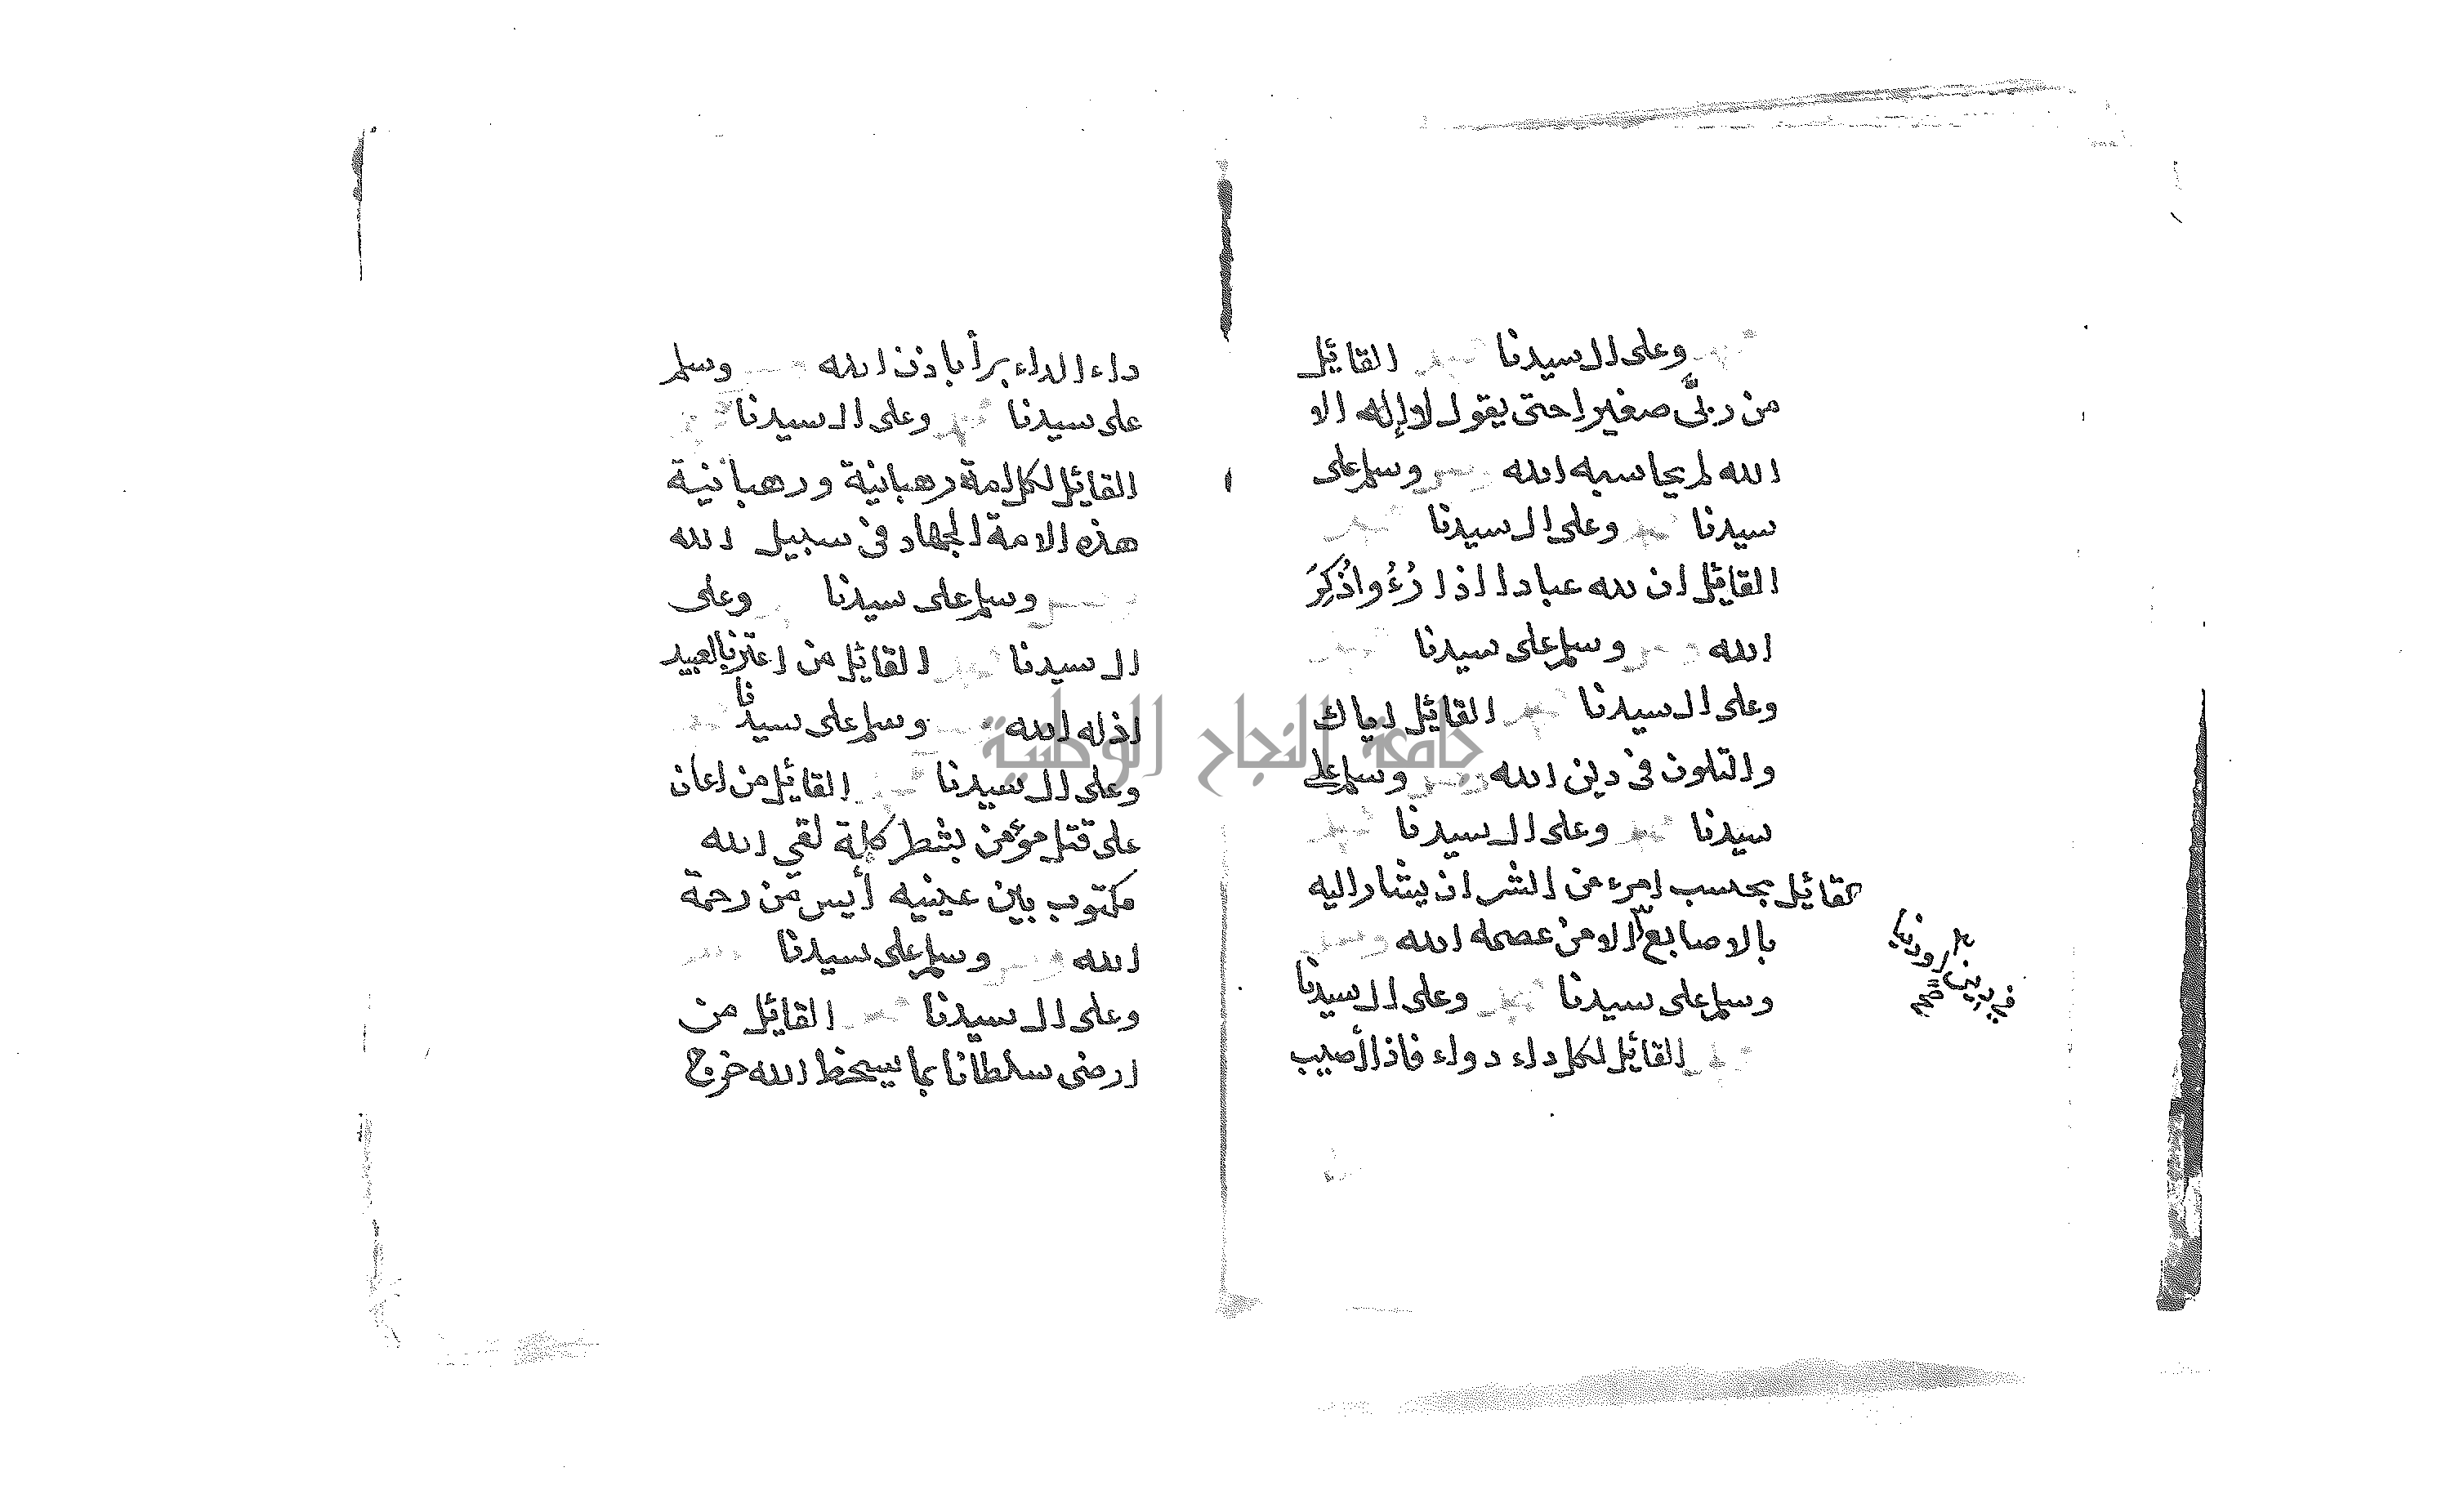 وعلى ال سيدنا القائل
من ربّى صغيرا حتى يقول لا إله الا
الله لم يحاسبه الله وسلم على
سيدنا محمد وعلى ال سيدنا
القائل ان لله عبادا اذا رُءُوا ذُكِرَ
الله وسلم على سيدنا
وعلى ال سيدنا محمد القائل اياك
والتلون فى دين الله وسلم على
سيدنا محمد وعلى ال سيدنا محمد
القائل بحسب امرء من الشر ان يشار اليه
بالاصابع الا من عصمه الله
وسلم على سيدنا وعلى ال سيدنا
القائل لكل داء دواء فاذا أصيب
فى دين او دنيا
صح
داء الداء برأ باذن الله وسلم
على سيدنا محمد وعلى ال سيدنا
القائل لكل امة رهبانية ورهبانية
هذه الامة الجهاد فى سبيل الله
وسلم على سيدنا وعلى
ال سيدنا القائل من اعتز بالعبيد
اذله الله وسلم على سيدنا
وعلى ال سيدنا القائل من اعان
على قتل مؤمن بشطر كلمة لقي الله
مكتوب بين عينيه أيس من رحمة
الله وسلم على سيدنا
وعلى ال سيدنا القائل من
ارضى سلطانا بما يسخط الله خرج
جامعة النجاح الوطنية